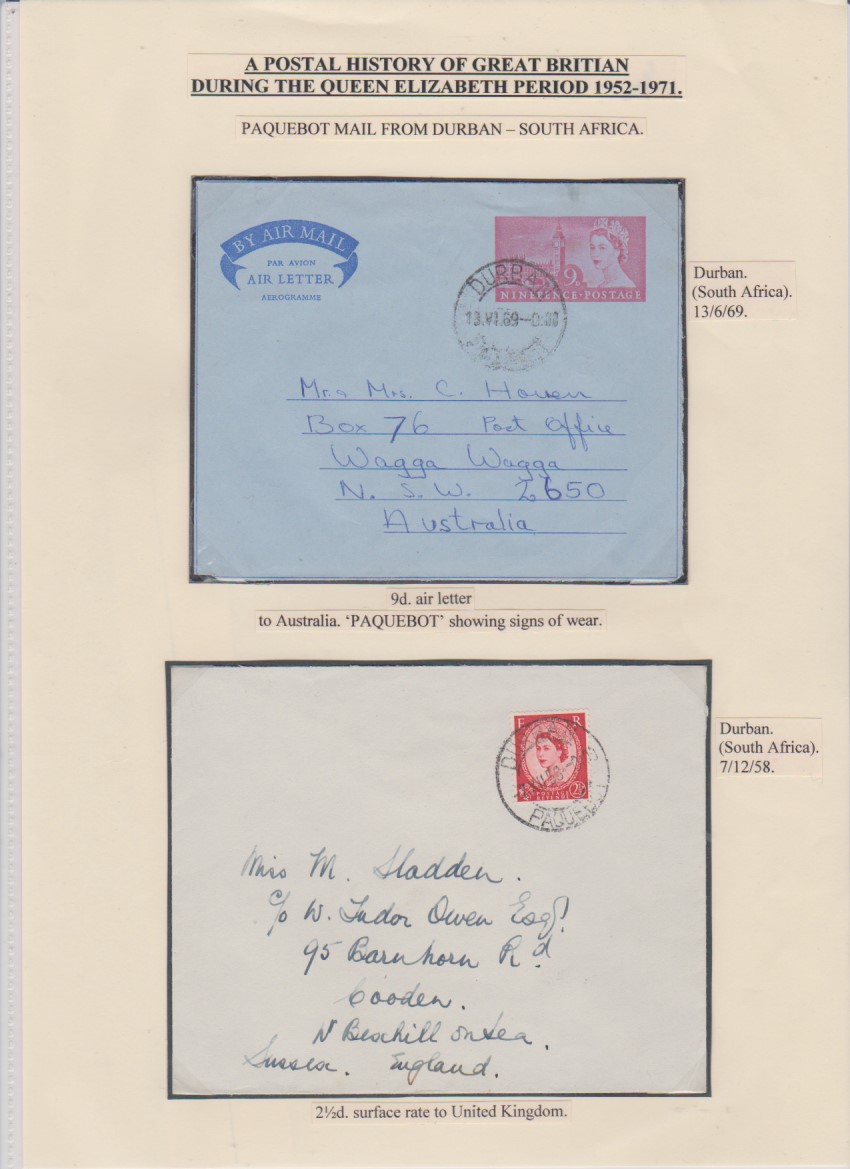 A POSTAL HISTORY OF GREAT BRITIAN
DURING THE QUEEN ELIZABETH PERIOD 1952-1971.
PAQUEBOT MAIL FROM DURBAN – SOUTH AFRICA.
BY AIR MAIL
PAR AVION
AIR LETTER
AEROGRAMME
9D
NINEPENCE·POSTAGE
DURBAN
13.VI.69
Durban.
(South Africa).
13/6/69.
Mr. & Mrs. C. Hoven
Box 76 Post Office
Wagga Wagga
N. S. W. 2650
Australia
9d. air letter
to Australia. ‘PAQUEBOT’ showing signs of wear.
E R
2½
DURBAN
PAQUEBOT
Durban.
(South Africa).
7/12/58.
Miss M. Sladden.
c/o W. Tudor Owen Esq!
95 Barnhorn Rd
Cooden.
Nr Bexhill on Sea.
Sussex. England.
2½d. surface rate to United Kingdom.